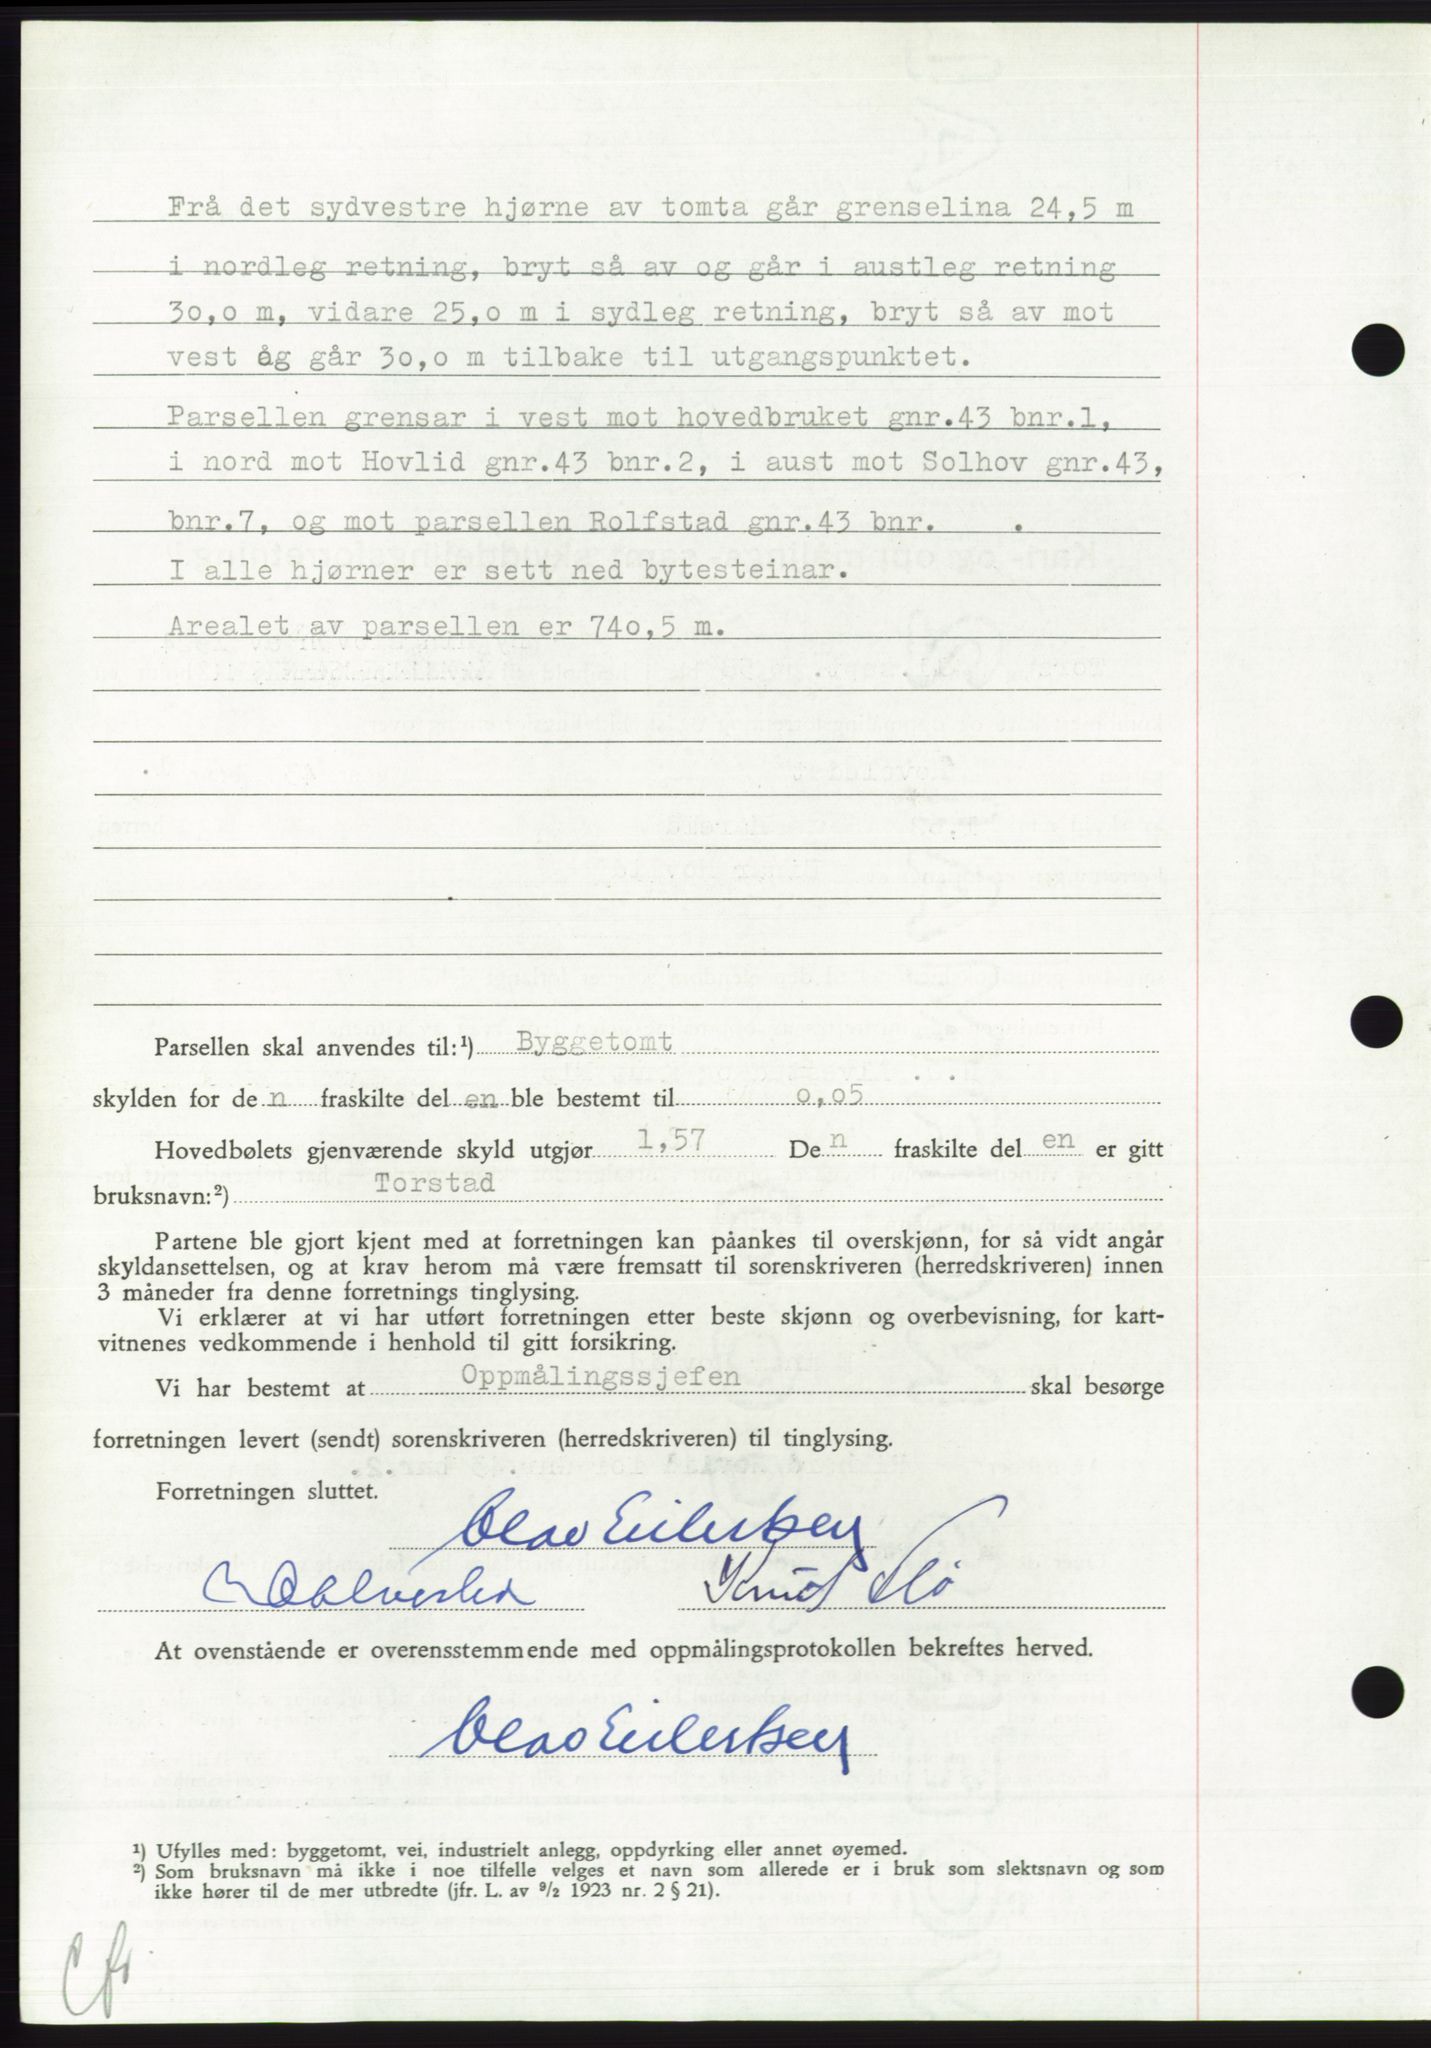 Frå det sydvestre hjørne av tomta går grenselina 24,5 m
i nordleg retning, bryt så av og går i austleg retning
30,0 m, vidare 25,0 m i sydleg retning, bryt så av mot
vest og går 30,0 m tilbake til utgangspunktet.
Parsellen grensar i vest mot hovedbruket gnr.43 bnr.1,
i nord mot Hovlid gnr.43 bnr.2, i aust mot Solhov gnr.43,
bnr.7, og mot parsellen Rolfstad gnr.43 bnr.     .
I alle hjørner er sett ned bytesteinar.
Arealet av parsellen er 740,5 m.
Parsellen skal anvendes til:¹) Byggetomt
skylden for de n fraskilte del en ble bestemt til 0,05
Hovedbølets gjenværende skyld utgjør 1,57 De n fraskilte del en er gitt
bruksnavn:²) Torstad
Partene ble gjort kjent med at forretningen kan påankes til overskjønn, for så vidt angår
skyldansettelsen, og at krav herom må være fremsatt til sorenskriveren (herredskriveren) innen
3 måneder fra denne forretnings tinglysing.
Vi erklærer at vi har utført forretningen etter beste skjønn og overbevisning, for kart-
vitnenes vedkommende i henhold til gitt forsikring.
Vi har bestemt at Oppmålingssjefen skal besørge
forretningen levert (sendt) sorenskriveren (herredskriveren) til tinglysing.
Forretningen sluttet.
Olav Eilertsen
Knut Flø
At ovenstående er overensstemmende med oppmålingsprotokollen bekreftes herved.
Olav Eilertsen
¹) Ufylles med: byggetomt, vei, industrielt anlegg, oppdyrking eller annet øyemed.
²) Som bruksnavn må ikke i noe tilfelle velges et navn som allerede er i bruk som slektsnavn og som
ikke hører til de mer utbredte (jfr. L. av 9/2 1923 nr. 2 § 21).